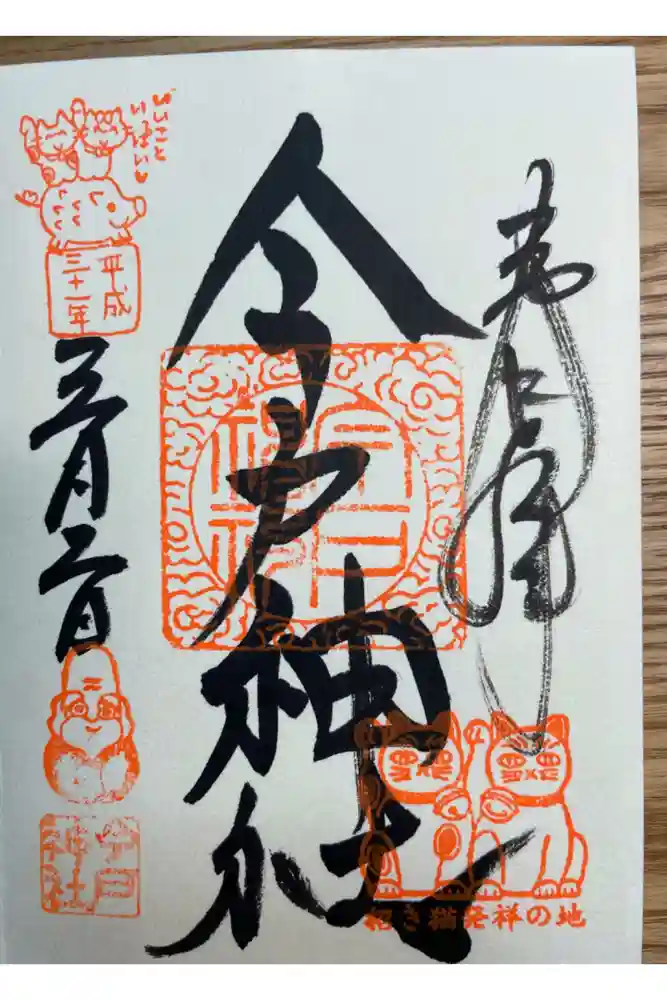 今戸神社
招き猫発祥の地
いいこと
いっぱい♥
平成
三十一年
三月二日
今戸
神社